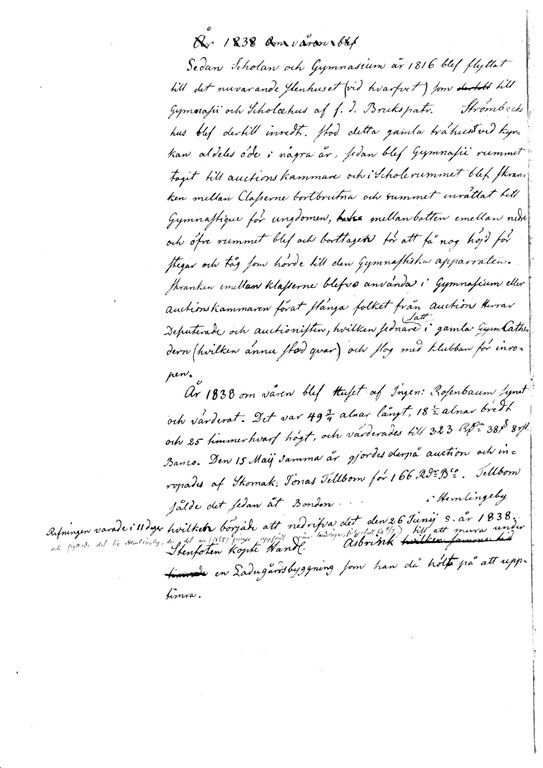 År 1838 om våren blef
Sedan Scholan och Gymnasium år 1816 blef flyttat
till det nuvarande Stenhuset (vid hvarfvet) som till
Gymnasii och Scholæhus af f. d. Brukspatr. Strömbecks
hus blef dertill inredt. stod detta gamla trähus vid kyr-
kan aldeles öde i några år, sedan blef Gymnasii rummet
tagit till auctionskammare och i Scholerummet blef skran-
ken mellan Classerne bortbrutna och rummet inrättat till
Gymnastique för ungdomen, mellanbotten emellan nedre
och öfre rummet blef och borttagen för att få nog höjd för
stegar och tåg som hörde till den Gymnastiska apparaten.
skranken emellan klasserne blefvo använda i Gymnasium eller
auctionskammaren förat stänga folket från auction Herrar
Deputerade och auctionisten, hvilken sednare satt i gamla Gym: Cathe-
dern (hvilken ännu stod qvar) och slog med klubban för inro-
pen.
År 1838 om våren blef Huset af Ingen: Rosenbaum synat
och värderat. Det var 49 3/4 alnar långt, 18 1/2 alnar bredt
och 25 timmerhvarf högt, och värderades till 323 Rdr 38 s 8 rst
Banco. Den 15 Maij samma år gjordes derpå auction och in-
ropades af Skomak. Jonas Tellbom för 166 Rdr Bco. Tellbom
sålde det sedan åt Bonden . . . i Hemlingeby
Refningen varade i 11 dagar hvilken började att nedrifva det den 26 Junij s. år 1838.
till att mura under
Stenfoten köpte Handl. Åsbrink hvilken
en Ladugårdsbyggning som han då höll på att upp-
timra.